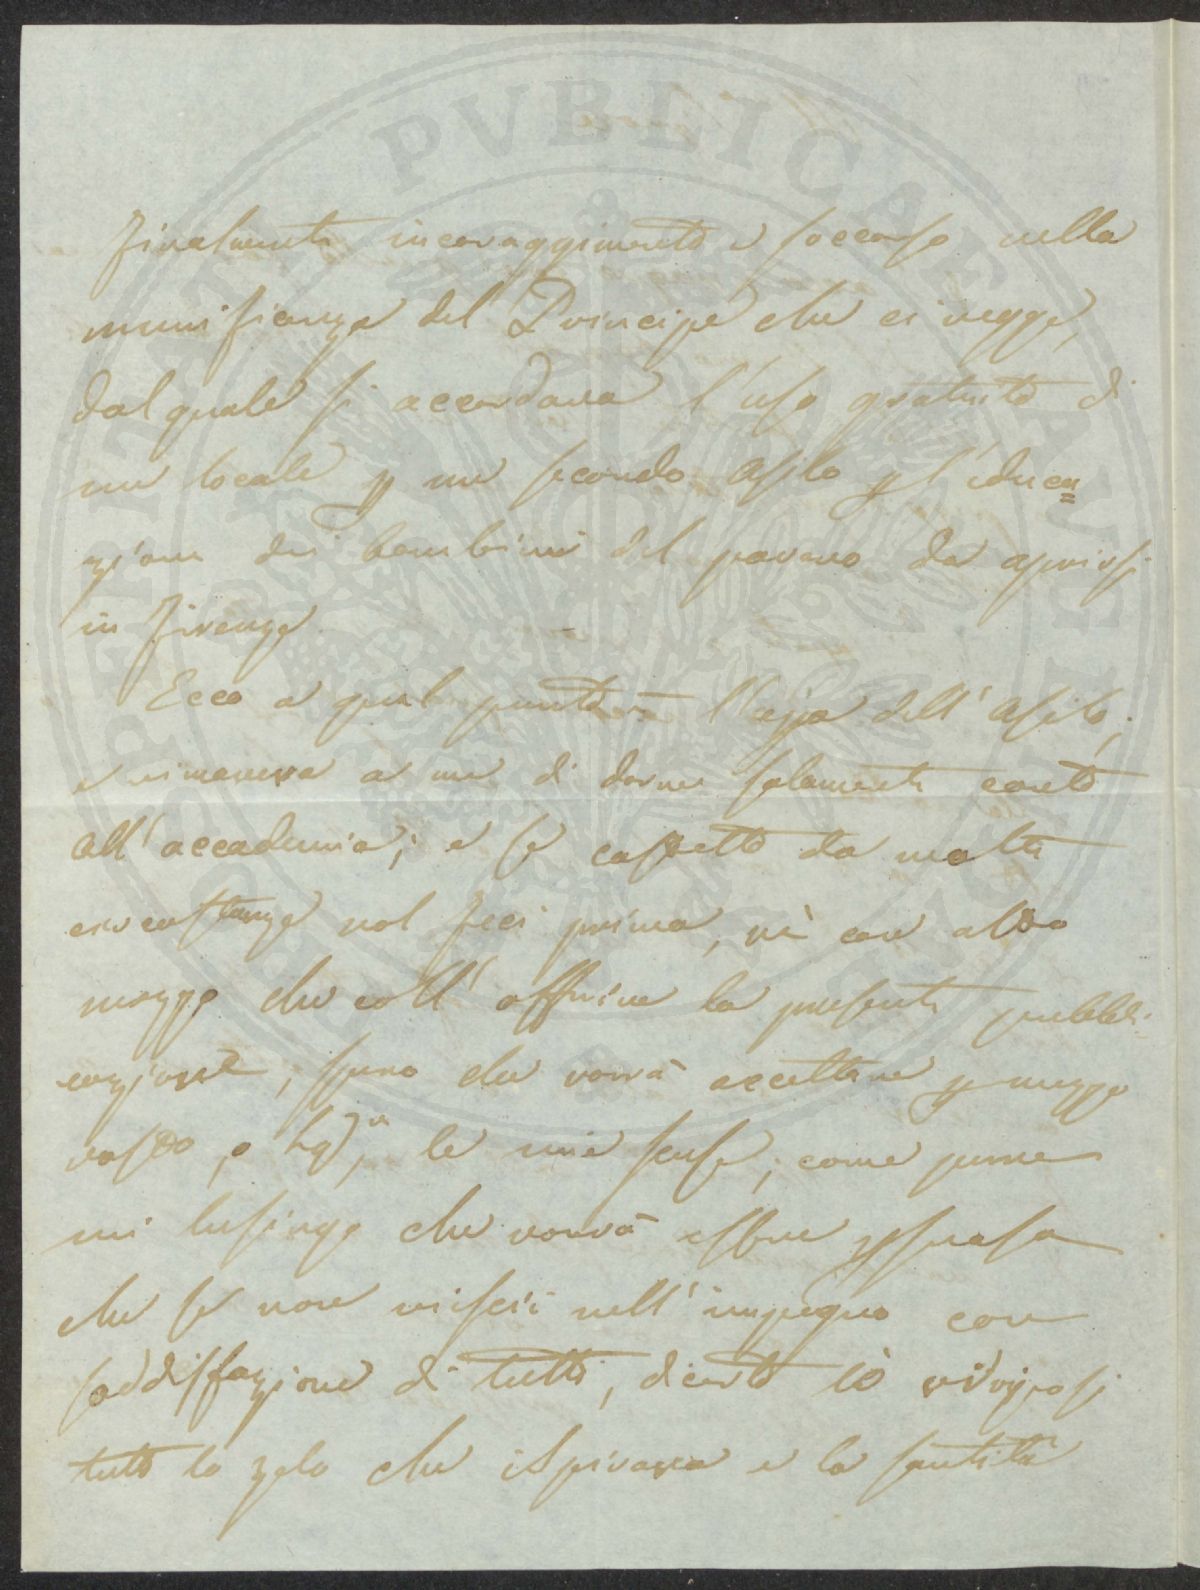 finalmente incoraggimento e soccorso nella
munificenza del Principe che ci regge,
dal quale si accordava l'uso gratuito di
un locale p un secondo Asilo p l'educa=
zione dei bambini del povero da aprirsi
in Firenze
Ecco a qual punto è l'opra dell'Asilo,
e rimaneva a me di darne solamente conto
all'accademia; e se costretto da molte
circostanze nol feci prima, nè con altro
mezzo che coll'offrire la presente pubbli-
cazione, spero che vorrà accettare p mezzo
vostro, o le mie scuse; come pure
mi lusingo che vorrà essere psuasa
che se non riuscii nell'impegno con
soddisfazione di tutti, di certo io vi
tutto lo zelo che ispirava e la santità
PVBLICAE